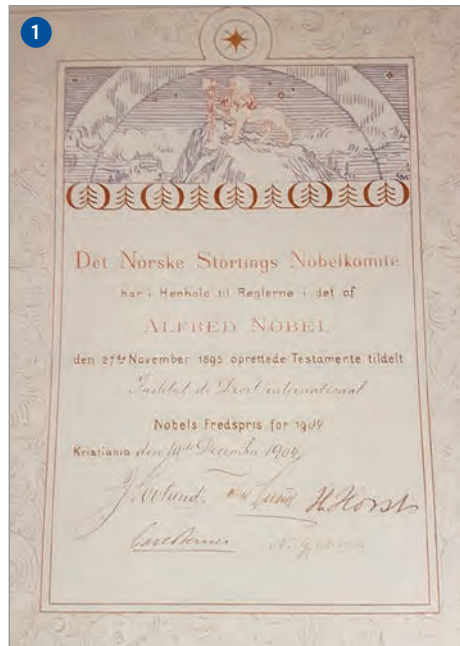 1
Det Norske Stortings Nobelkomité
har i Henhold til Reglerne i det af
ALFRED NOBEL
den 27de November 1895 oprettede Testamente tildelt
Institut de Droit international
Nobels Fredspris for 1904
Kristiania den 10de December 1904
J. Løvland. H. Horst
Carl Berner